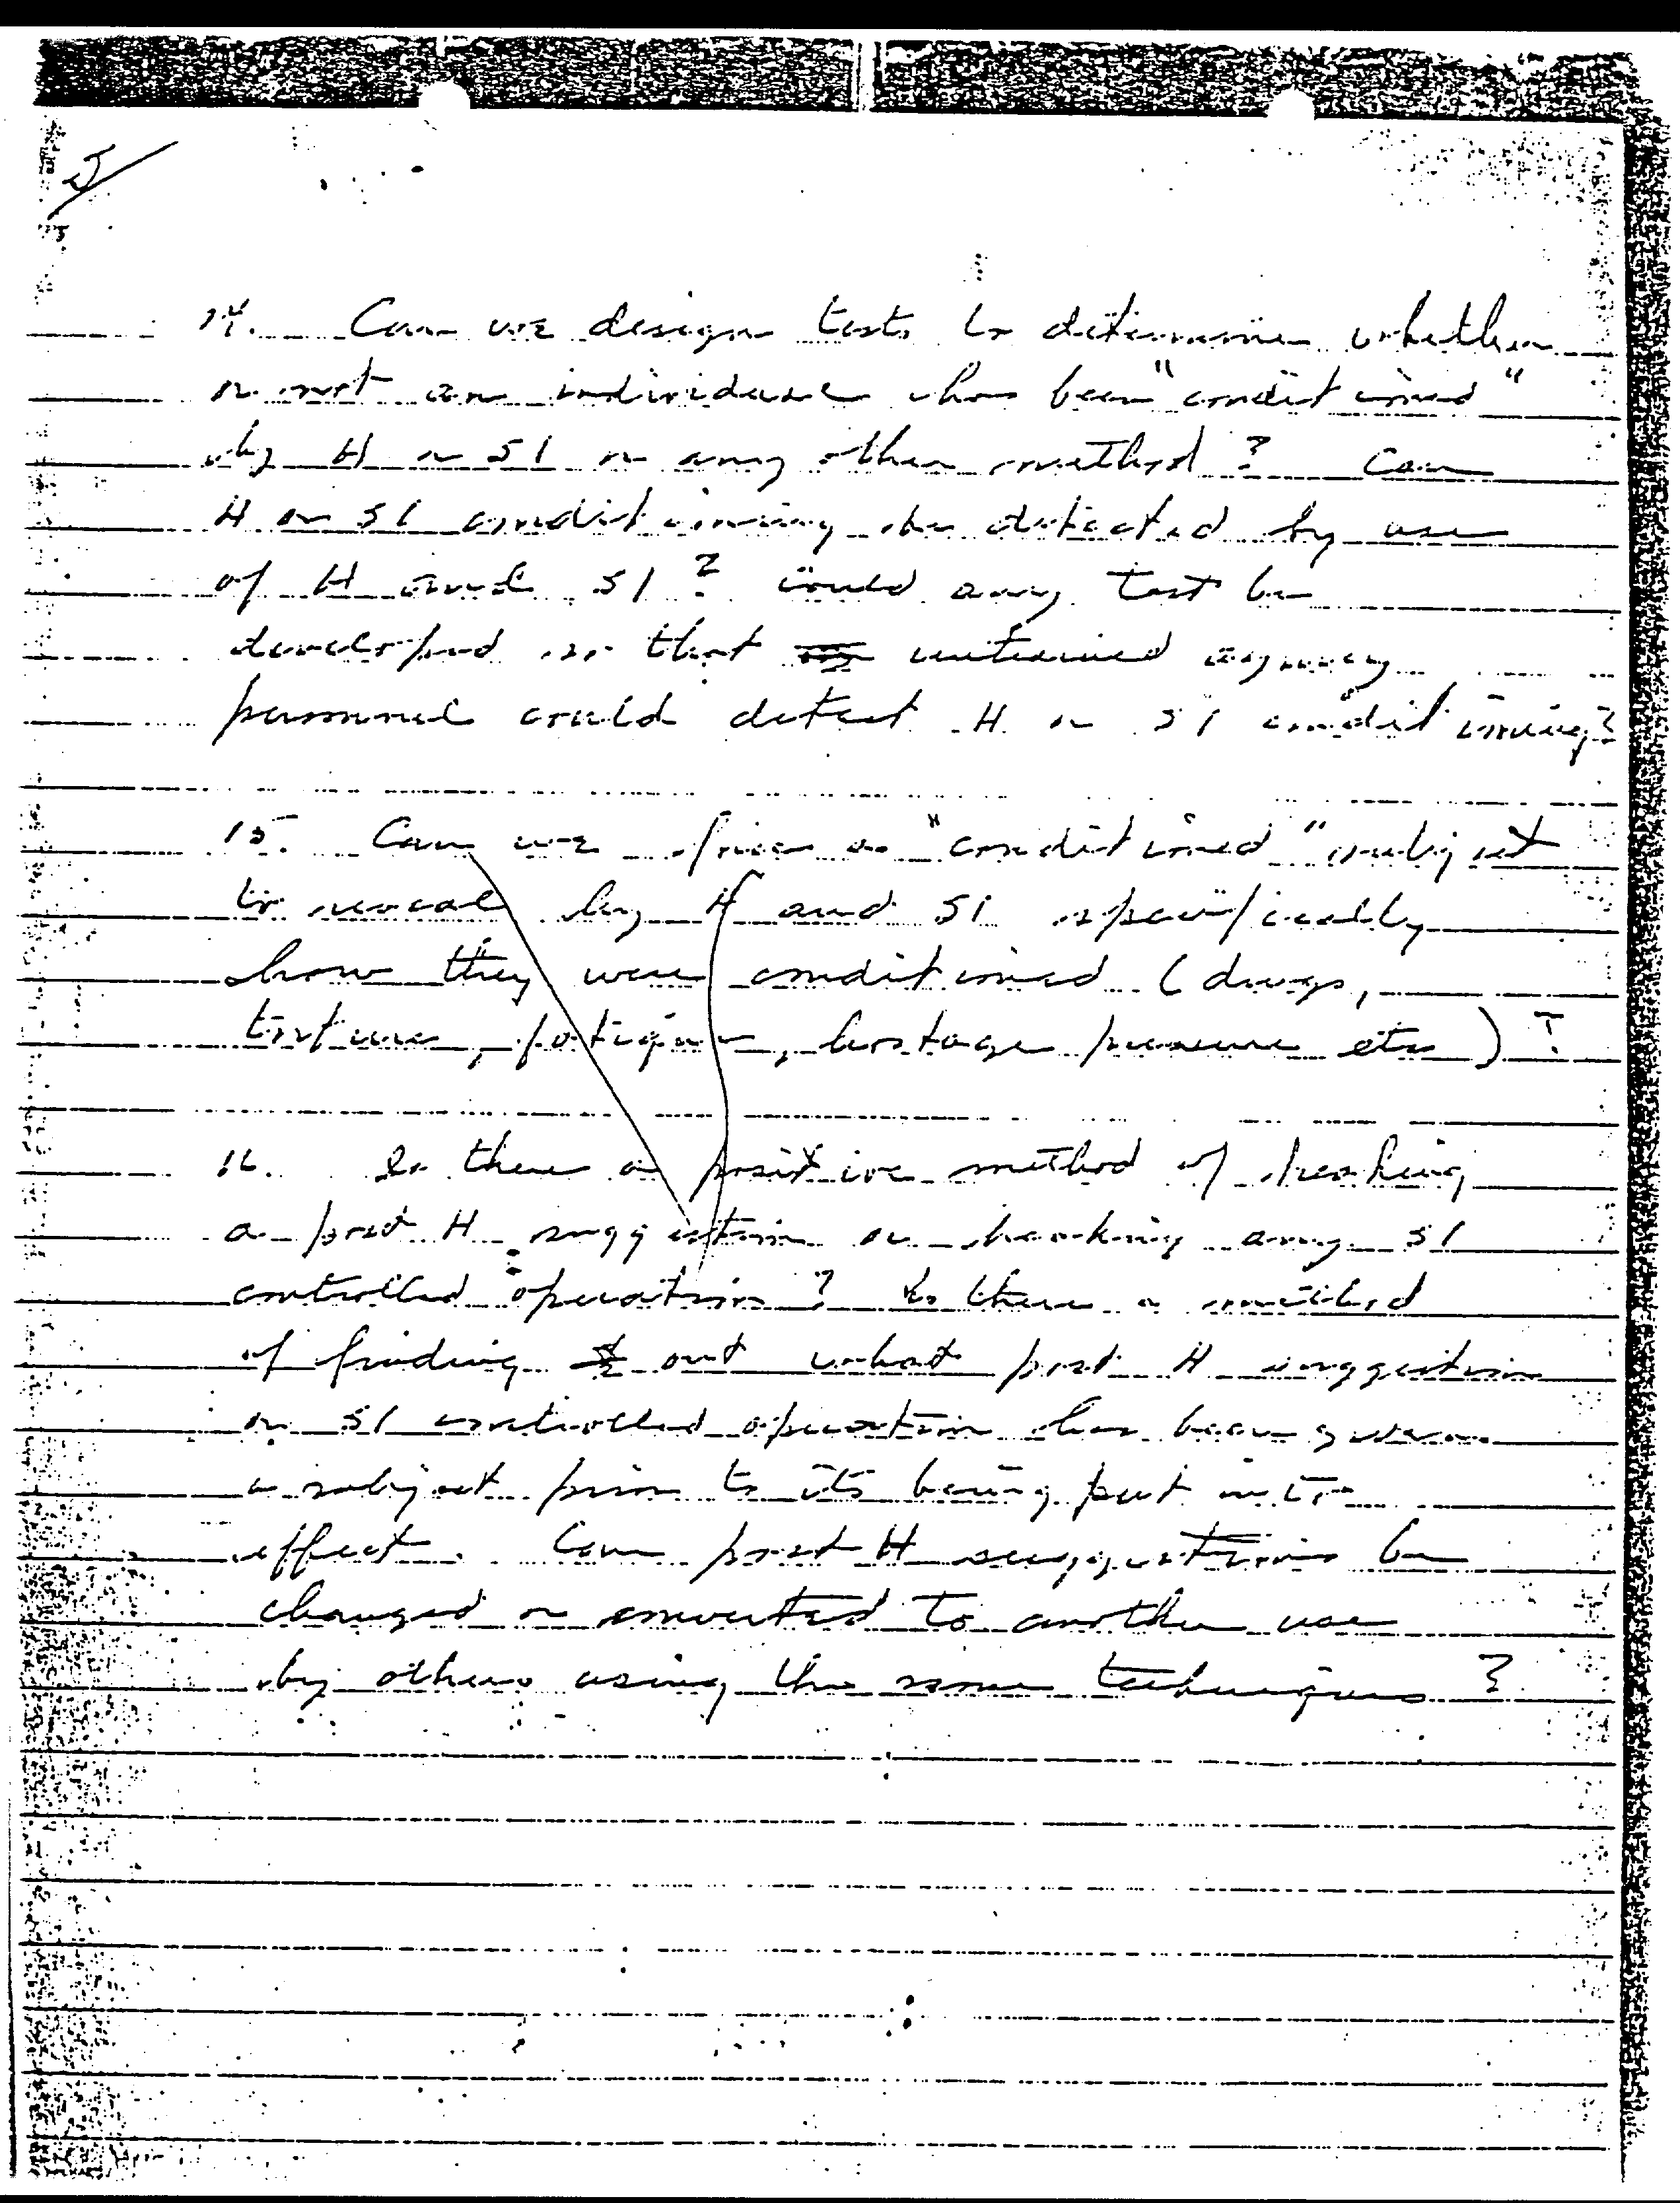 5/
14. Can we design tests to determine whether
or not an individual has been "conditioned"
by H or SI or any other method? Can
H or SI conditioning be detected by use
of H and SI? Could any test be
developed so that untrained agency
personnel could detect H or SI conditioning?
15. Can we force a "conditioned" subject
to reveal by H and SI specifically
how they were conditioned (drugs,
torture, fatigue, hostage pressure etc)?
16. Is there a positive method of breaking
a post H suggestion or breaking any SI
controlled operation? Is there a method
of finding out what post H suggestion
or SI controlled operation has been given
a subject prior to its being put into
effect. Can post H suggestions be
changed or converted to another use
by others using the same techniques?